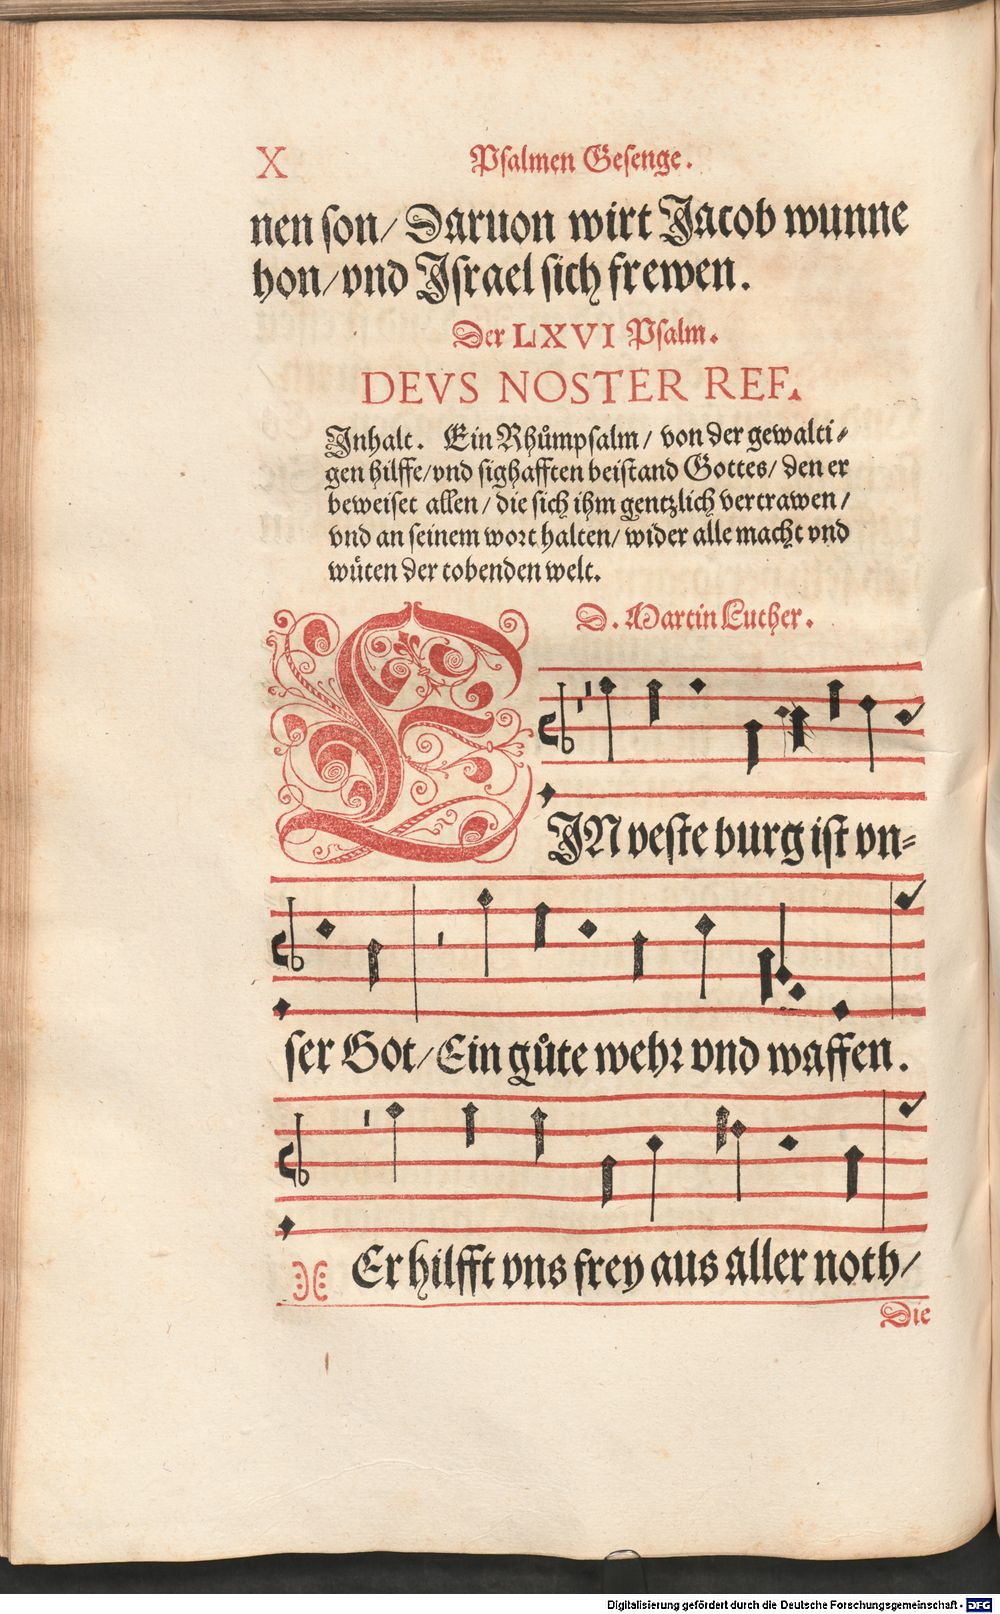 X Psalmen Gesenge.
nen son/ Daruon wirt Jacob wunne
hon/ vnd Jsrael sich frewen.
Der LXVI Psalm.
DEVS NOSTER REF.
Jnhalt. Ein Rhůmpsalm/ von der gewalti⸗
gen hilffe/ vnd sighafften beistand Gottes/ den er
beweiset allen/ die sich ihm gentzlich vertrawen/
vnd an seinem wort halten/ wider alle macht vnd
wüten der tobenden welt.
D. Martin Luther.
EJN veste burg ist vn⸗
ser Got/ Ein gůte wehr vnd waffen.
Er hilfft vns frey aus aller noth/
Die
Digitalisierung gefördert durch die Deutsche Forschungsgemeinschaft - DFG